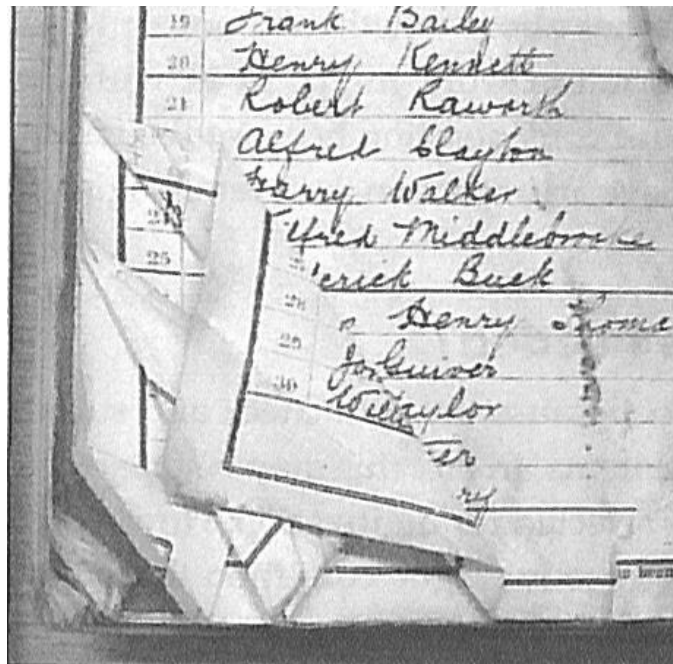 19 Frank Bailey
20 Henry Kennett
21 Robert Raworth
Alfred Clayton
Harry Walker
lfred Middlebrooke
25 erick Buck
28 Henry Thoma
29 Guiver
30 Taylor
ter
ry